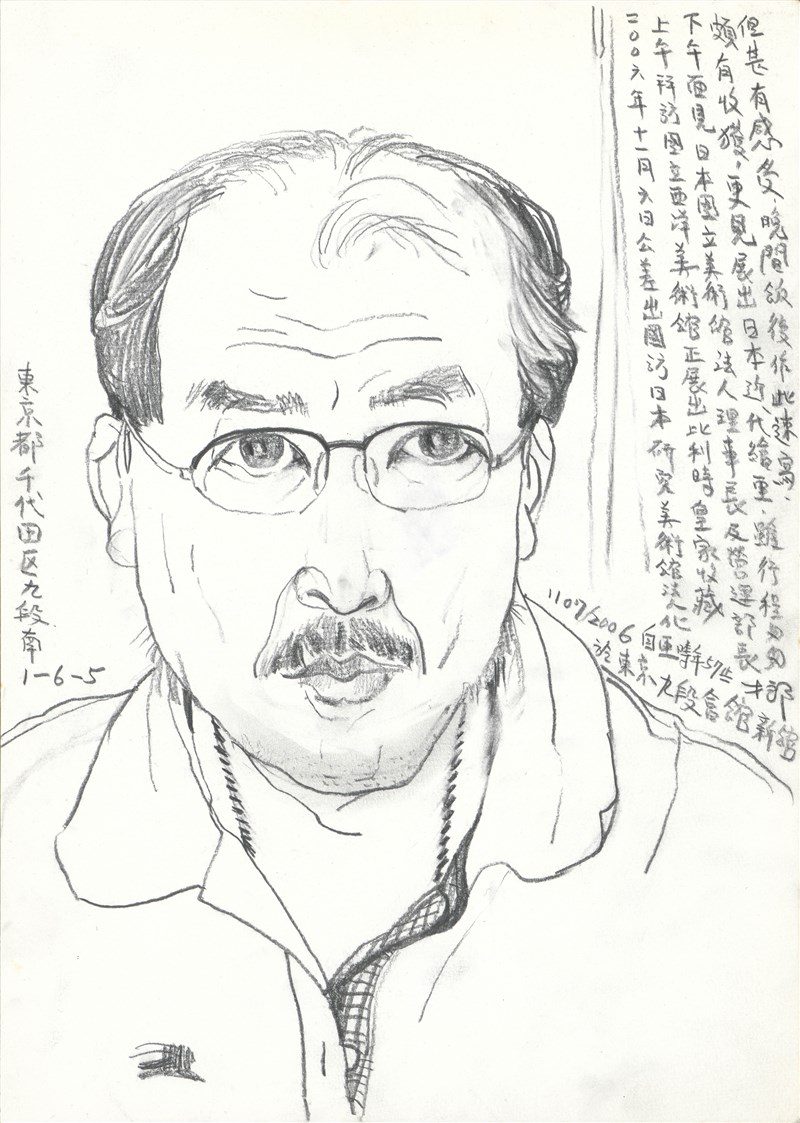 二００六年十一月六日公差出國訪日本研究美術館法人化
上午拜訪國立西洋美術館正展出比利時皇家收藏
下午面見日本國立美術館法人理事長及營運部長
頗有收獲,更見展出日本近、代繪畫,雖行程匆匆
但甚有感受,晚間飯後作此速寫.
1107/2006 自畫時年57歲
於東京九段會館新館
東京都千代田区九段南
1-6-5